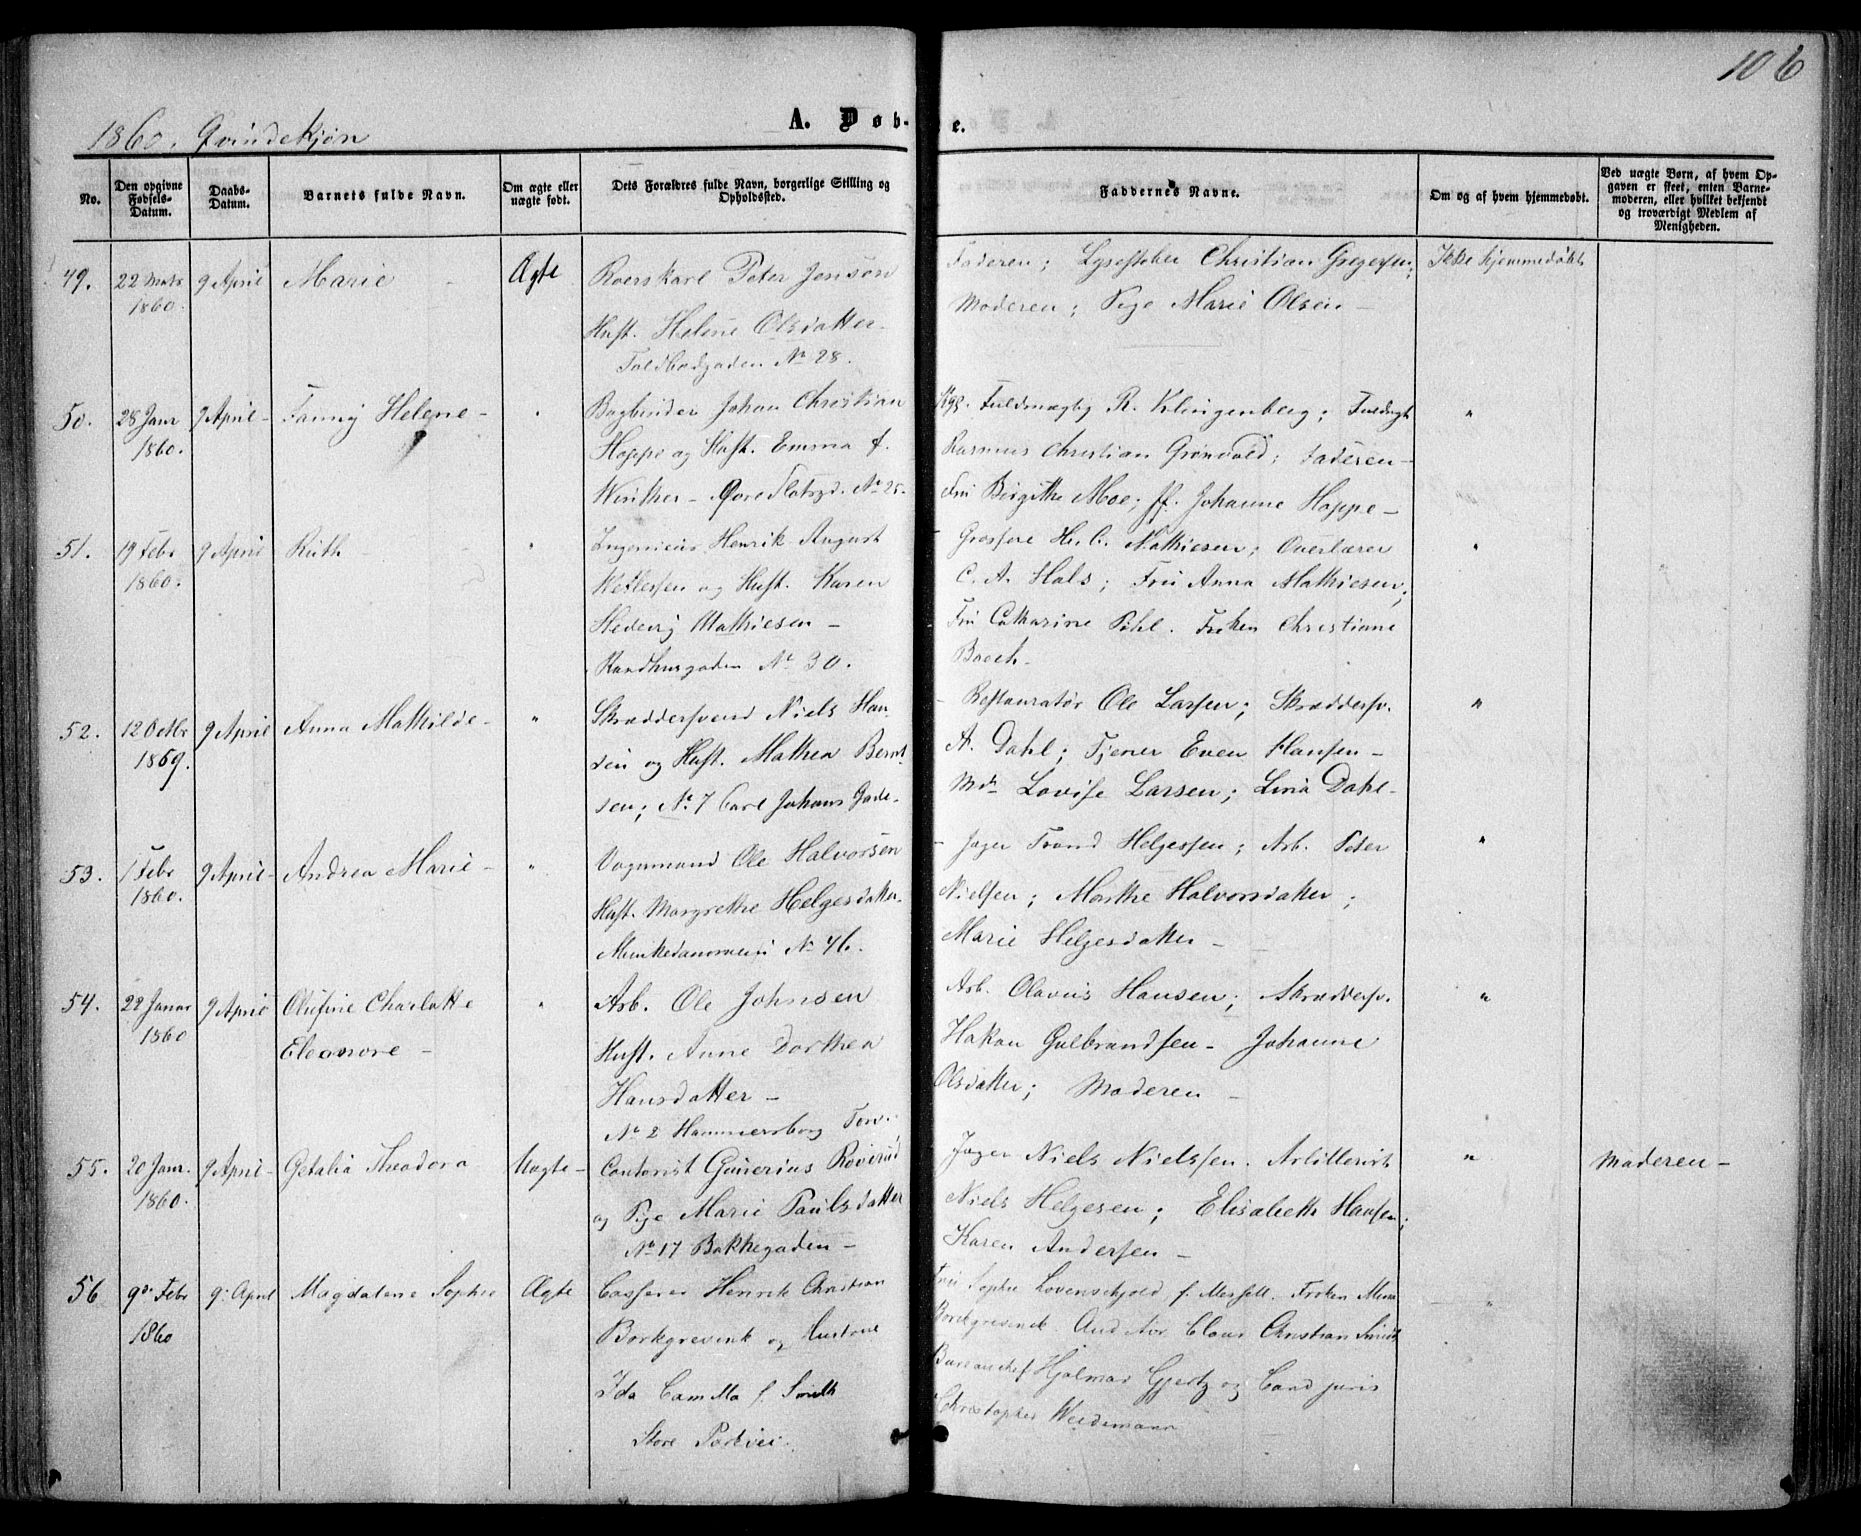 106
1860. Qvindekjøn
A. Døb-
e.
No.
Den opgivne Fødsels-Datum.
Daabs-Datum.
Barnets fulde Navn.
Om ægte eller uægte født.
Dets Forældres fulde Navn, borgerlige Stilling og Opholdssted.
Faddernes Navne.
Om og af hvem hjemmedøbt.
Ved uægte Børn, af hvem Opgaven er skeet, enten Barnemoderen, eller hvilket bekjendt og troværdigt Medlem af Menigheden.
49. 22 Mats 1860. 9 April Marie - Ægte
Roerskarl Peter Jonson
Hust. Helene Olsdatter.
Toldbodgaden No 28.
Faderen; Christian Gregersen;
Moderen; Pige Marie Olsen -
Ikke hjemmedøbt
50. 28 Janr 1860. 9 April - Fanny Helene - "
Bogbinder Johan Christian
Hoppe og Hust. Emma f.
Winther - Øvre Slotsgd. No 25.
Fuldmægtig R. Klingenberg; Fuldmgt
Rasmus Christian Grønvold; Faderen -
Fru Birgithe Moe; Johanne Hoppe -
"
51. 19 Febr 1860. 9 April Ruth - "
Ingenieur Henrik August
og Hust. Karen
Hedevig Mathiesen -
Raadhusgaden No 30.
Grosfere H. C. Mathiesen; Overlærer
C. A. Hals; Fru Anna Mathiesen;
Fru Catharine Pihl. Frøken Christiane
Broch -
"
52. 12 Octbr 1859. 9 April Anna Mathilde - "
Skræddersvend Niels Han-
sen og Hust. Mathea Bernt
sen; No 7 Carl Johans Gade -
Restauratør Ole Larsen; Skræddersv.
A. Dahl; Tjener Even Hansen -
Lovise Larsen; Lina Dahl -
"
53. 1 Febr 1860. 9 April - Andrea Marie - "
Vognmand Ole Halvorsen
Hust. Margrethe Helgesdatter.
Munkedamsveien No 46.
Jæger Trond Helgessen; Arb. Peter
Nielsen; Marthe Halvorsdatter;
Marie Helgesdatter -
"
54. 22 Januar 1860 9 April Olufine Charlotte
Eleonore - "
Arb. Ole Johnsen
Hust. Anne Dorthea
Hansdatter -
No 2 Hammersborg Torv.
Arb. Olavus Hansen; Skræddersv.
Hakon Gulbrandsen - Johanne
Olsdatter; Moderen -
"
55. 20 Janr. 1860. 9 April - Getalia Theodora Uægte -
Contorist Gunerius
og Pige Marie Paulsdatter
No 17 Bakkegaden -
Jæger Niels Nielssen. Artillerist
Niels Helgesen; Elisabeth Hansen;
Karen Andersen -
"
Moderen -
56 9de Febr 1860 9: April Magdalene Sophie Ægte
Casserer Henrik Christian
Borkgrevink og Hustrue
Ida Camilla f. Smith
Store Parkvei.
Fru Sophie Løvenskjold f. Frøken
Borkgrevink Auditør Claus Christian Smith
Bureauchef Hjalmar Gjertz og Cand juris
Christopher Weidemann
"